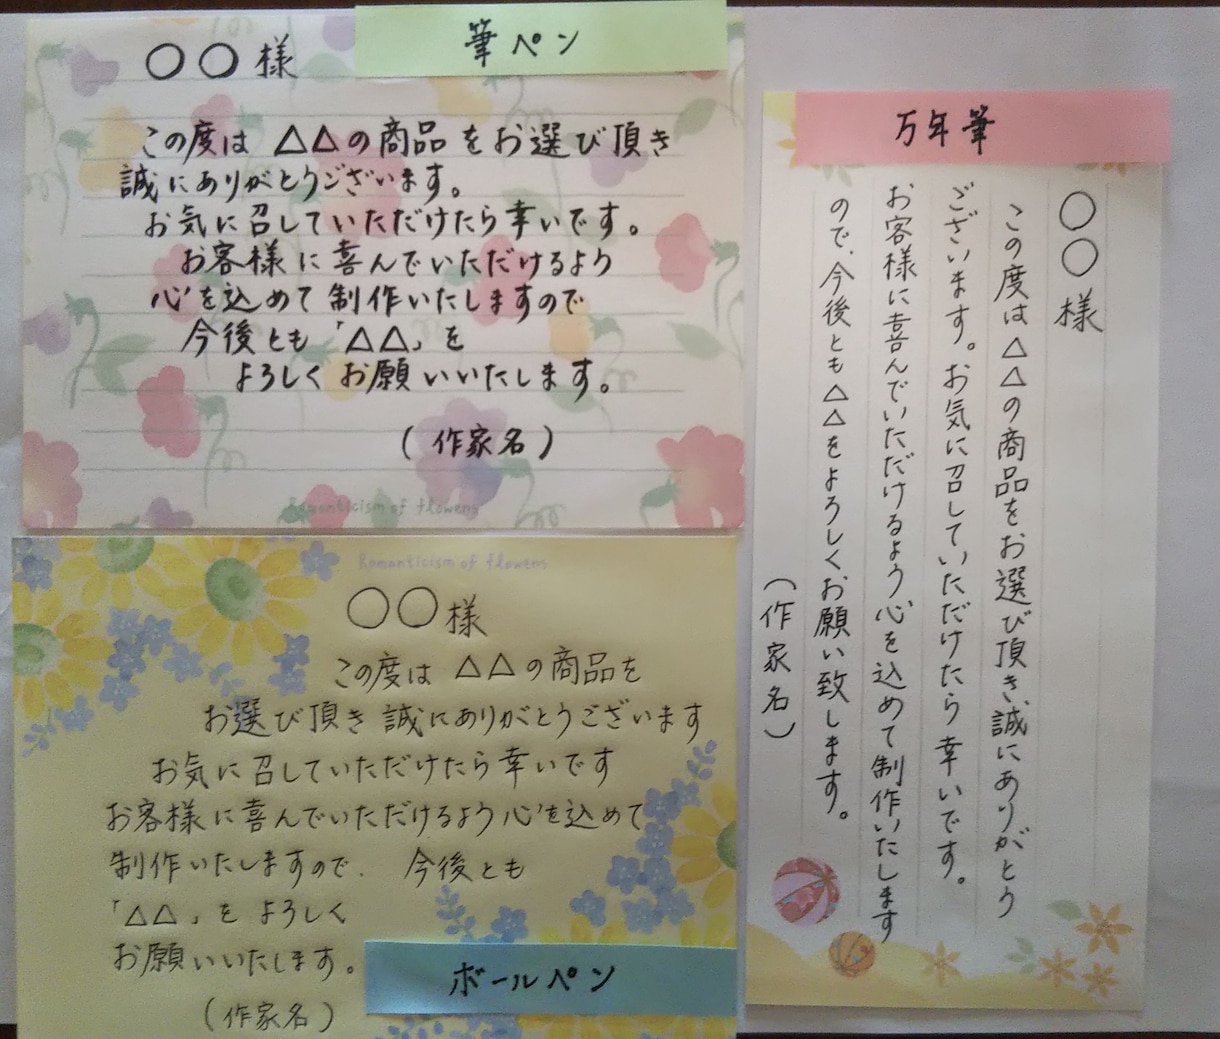 筆ペン
○○様
この度は △△の商品をお選び頂き
誠にありがとうございます。
お気に召していただけたら幸いです。
お客様に喜んでいただけるよう
心を込めて制作いたしますので
今後とも「△△」を
よろしくお願いいたします。
(作家名)
Romanticism of flowers
万年筆
○○様
この度は△△の商品をお選び頂き、誠にありがとう
ございます。お気に召していただけたら幸いです。
お客様に喜んでいただけるよう心を込めて制作いたします
ので、今後とも△△をよろしくお願い致します。
(作家名)
Romanticism of flowers
○○様
この度は △△の商品を
お選び頂き 誠にありがとうございます
お気に召していただけたら幸いです
お客様に喜んでいただけるよう心を込めて
制作いたしますので、今後とも
「△△」を よろしく
お願いいたします。
(作家名)
ボールペン